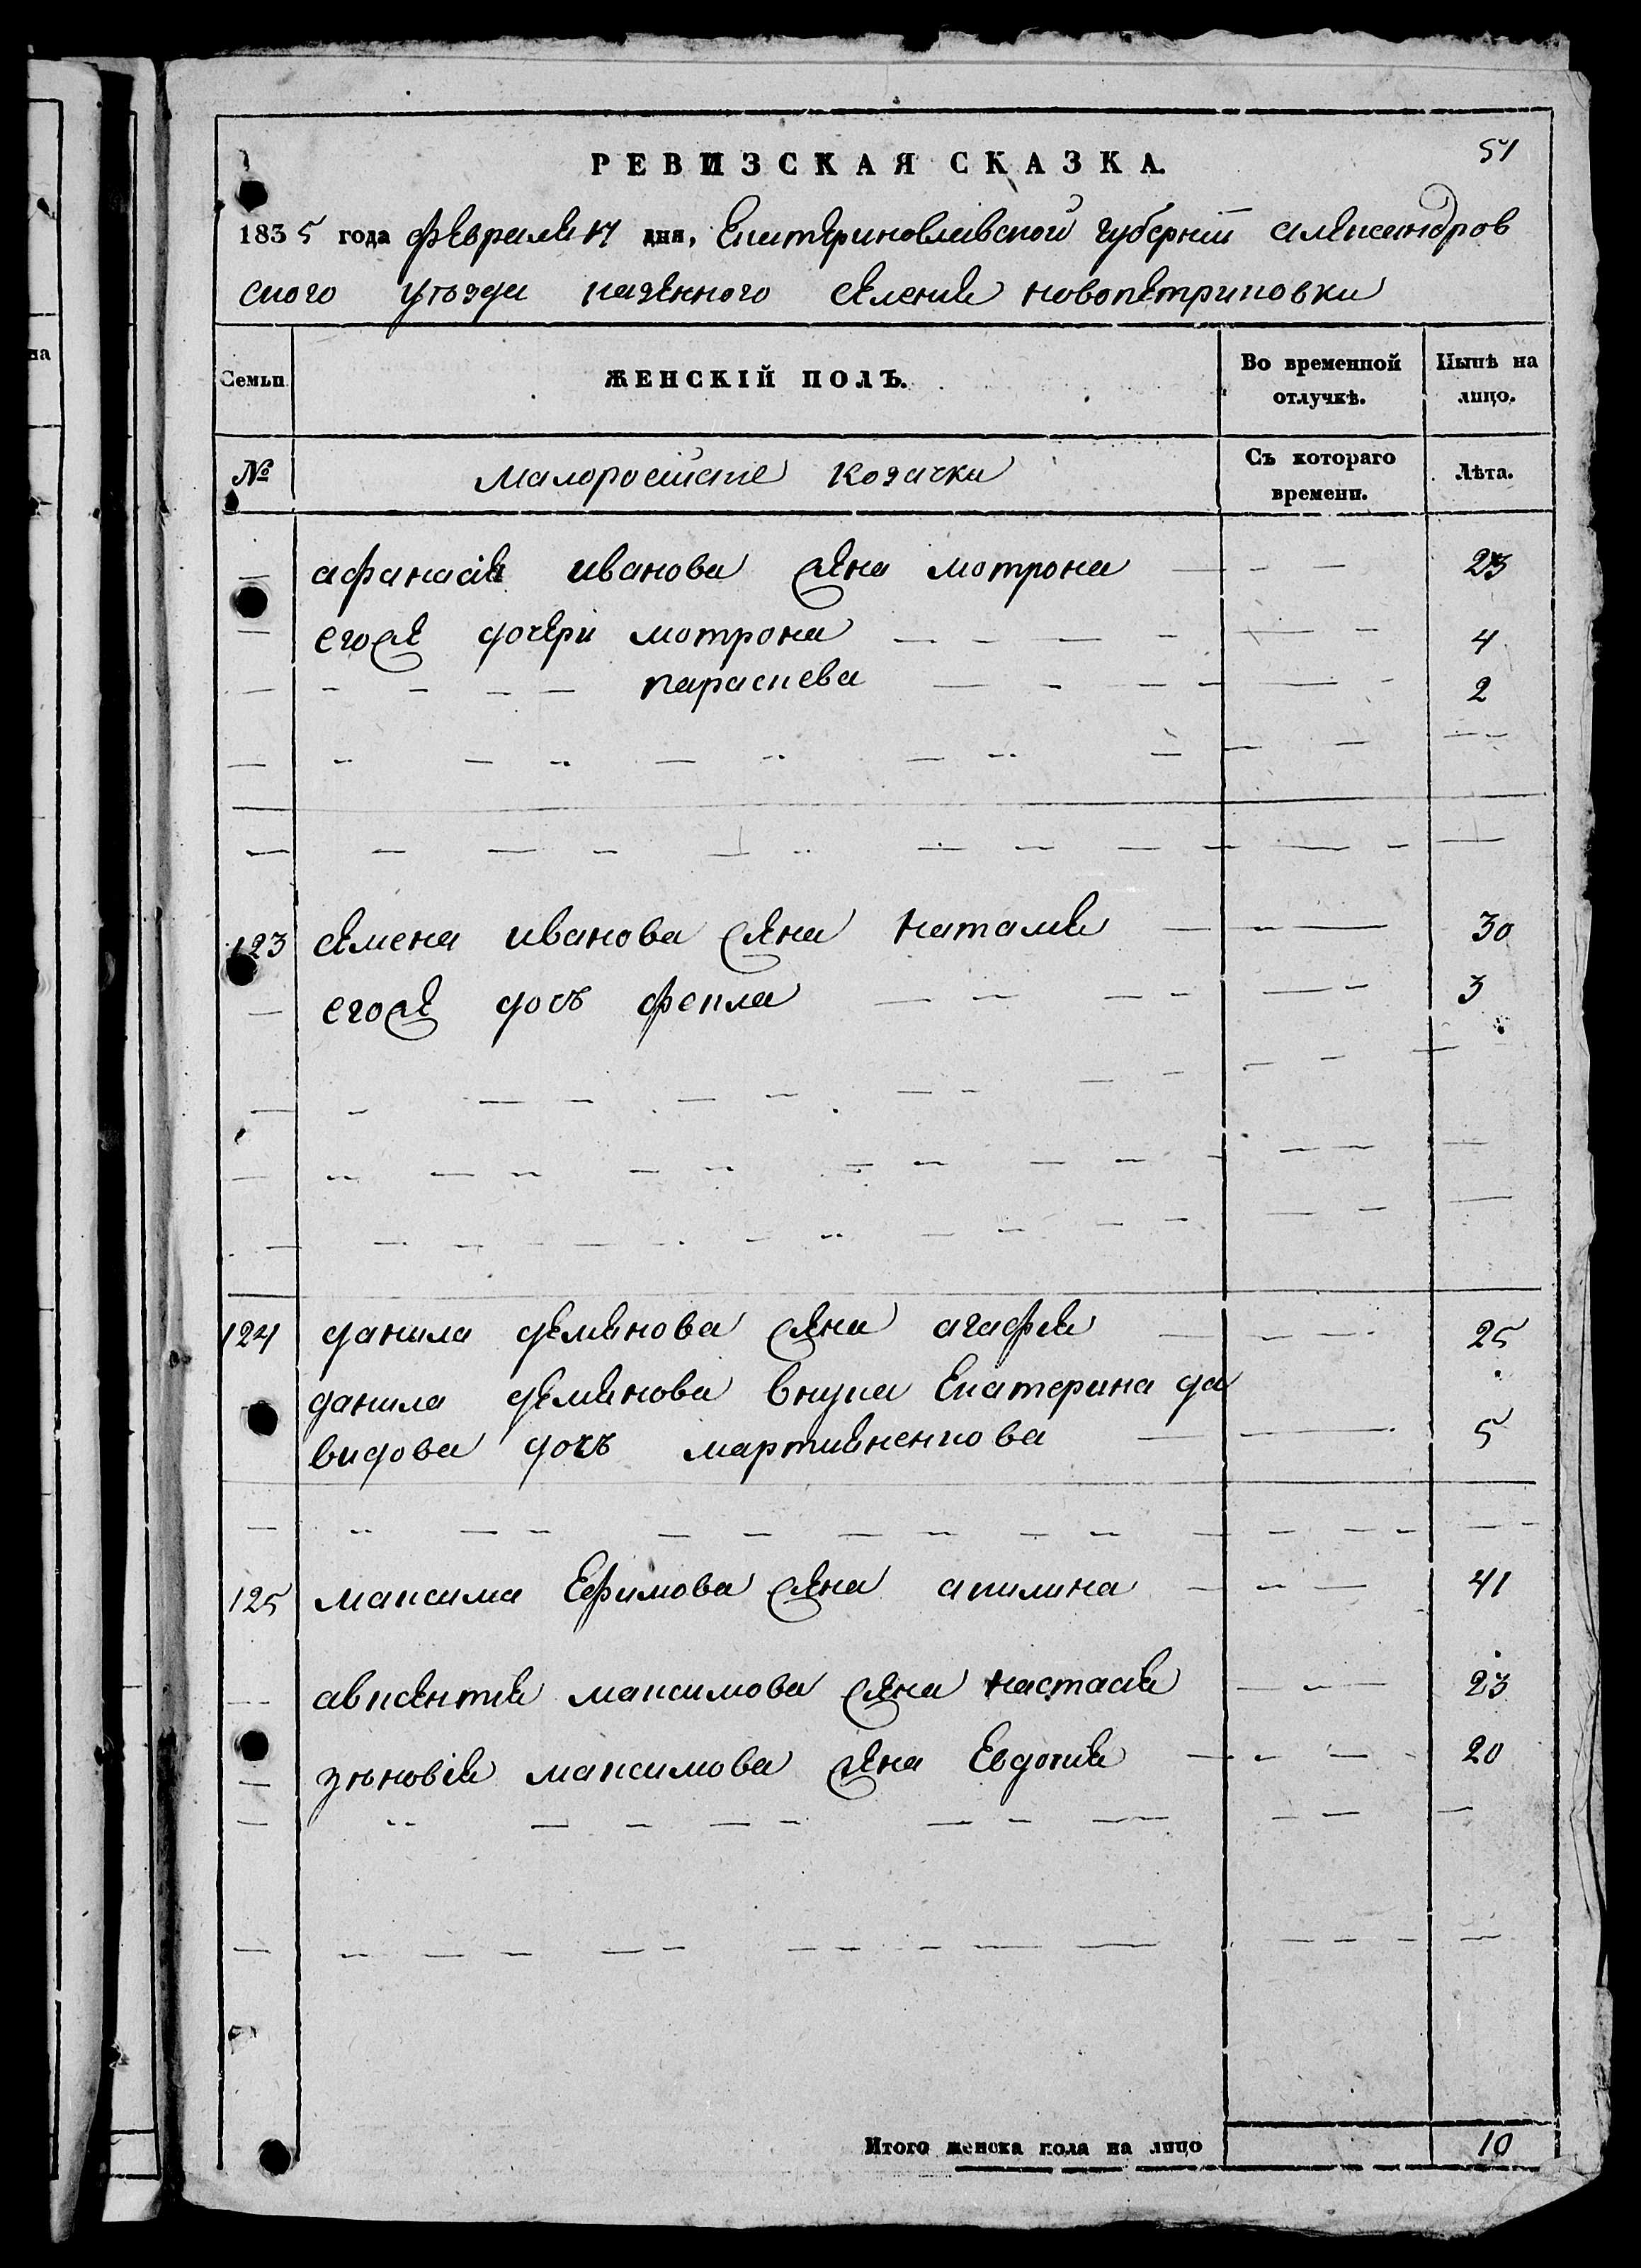 51
РЕВИЗСКАЯ СКАЗКА.
1835 года февраля 17 дня, Екатериновлавской губернии александров
ского уезда казенного селения новопетриковки
Семьи
ЖЕНСКІЙ ПОЛЪ.
Во временной отлучкѣ.
Нынѣ на лицо.
№
Малоросийские козачки
Съ котораго времени.
Лѣта.
афанасія иванова жена мотрона 23
егоже дочери мотрона 4
параскева 2
123 семена иванова жена наталия 30
егоже дочь фекла 3
124 данила демянова жена агафия 25
данила демянова внука Екатерина да
видова дочь мартиненкова 5
125 максима Ефимова жена акилина 41
авксентия максимова жена настасия 23
зѣновія максимова жена Евдокия 20
Итого женска пола на лицо 10
на